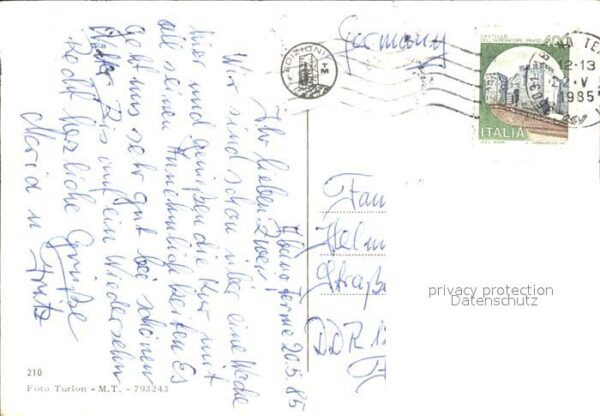 Abano Terme 20.5.85
Ihr lieben Zwei
Wir sind schon über eine Woche
hier und genießen die Kur mit
all seinen Annehmlichkeiten Es
geht uns sehr gut bei schönem
Wetter. Bis auf ein Wiedersehn
Recht herzliche Grüße
Maria u Fritz
EDIZIONI
TM
Germany
CASTELLO DELL'IMPERATORE - PRATO 400
ITALIA
12-13
1985
Fam
Helm
Straße
DDR
privacy protection
Datenschutz
210
Foto Turlon - M.T. - 793243